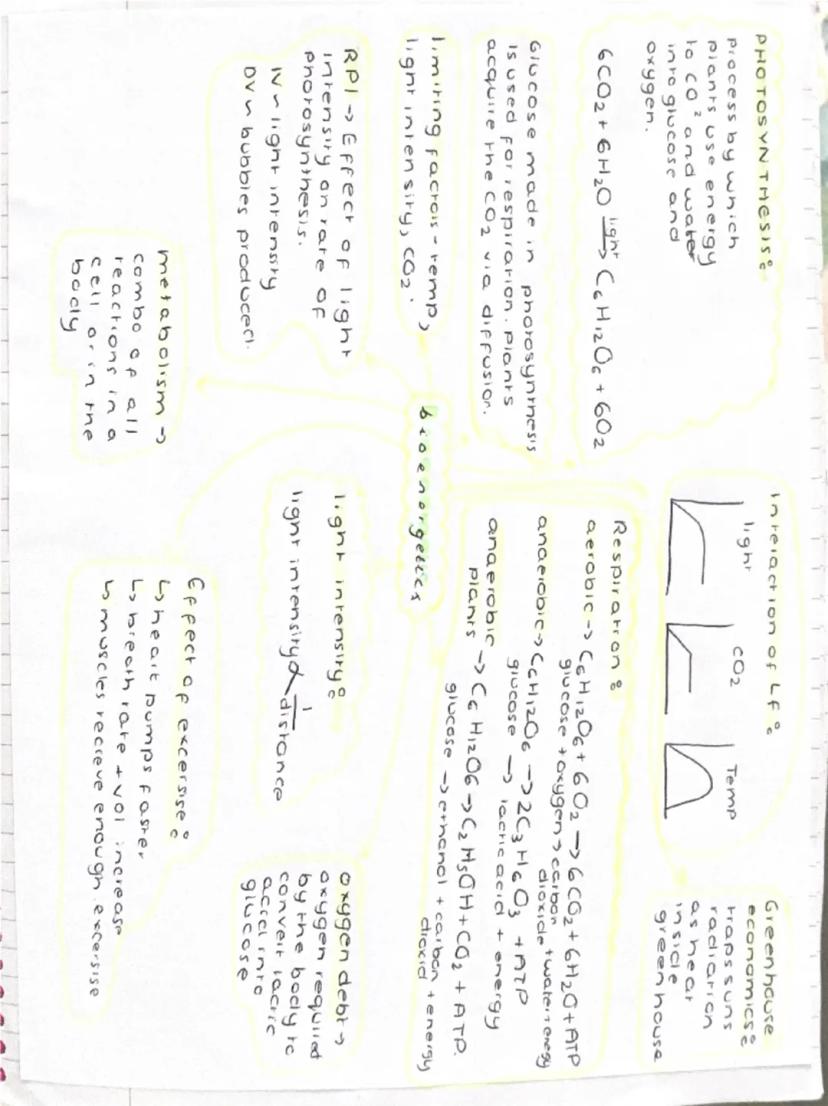 PHOTOSYNTHESIS:
process by which
plants use energy
to CO² and water
into glucose and
oxygen.
6CO2 + 6H2O light → C6H12O6 + 6O2
Glucose made in photosynthesis
is used for respiration. Plants
acquire the CO2 via diffusion.
limiting factors - temp,
light intensity, CO2.
RP1 → Effect of light
intensity on rate of
photosynthesis.
IV ~ light intensity
DV ~ bubbles produced.
metabolism →
combo of all
reactions in a
cell or in the
body
bioenergetics
Interaction of LF:
light
CO2
Temp
Greenhouse
economics:
traps suns
radiation
as heat
inside
greenhouse
Respiration:
aerobic → C6H12O6 + 6O2 → 6CO2 + 6H2O + ATP
glucose + oxygen → carbon
dioxide + water + energy
anaerobic → C6H12O6 → 2C3H6O3 + ATP
glucose → lactic acid + energy
anaerobic → C6H12O6 → C2H5OH + CO2 + ATP.
plants
glucose → ethanol + carbon + energy
dioxid
light intensity:
light intensity ∝ 1
distance
oxygen debt →
oxygen required
by the body to
convert lactic
acid into
glucose
Effect of excersise:
↳ heart pumps faster
↳ breath rate + vol increase
↳ muscles recieve enough excersise